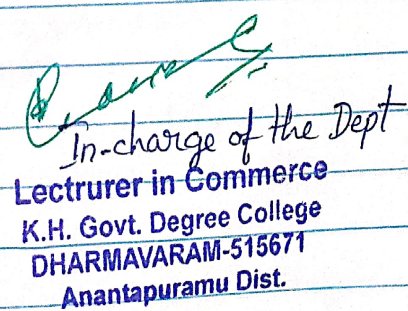 In-charge of the Dept
Lectrurer in Commerce
K.H. Govt. Degree College
DHARMAVARAM-515671
Anantapuramu Dist.